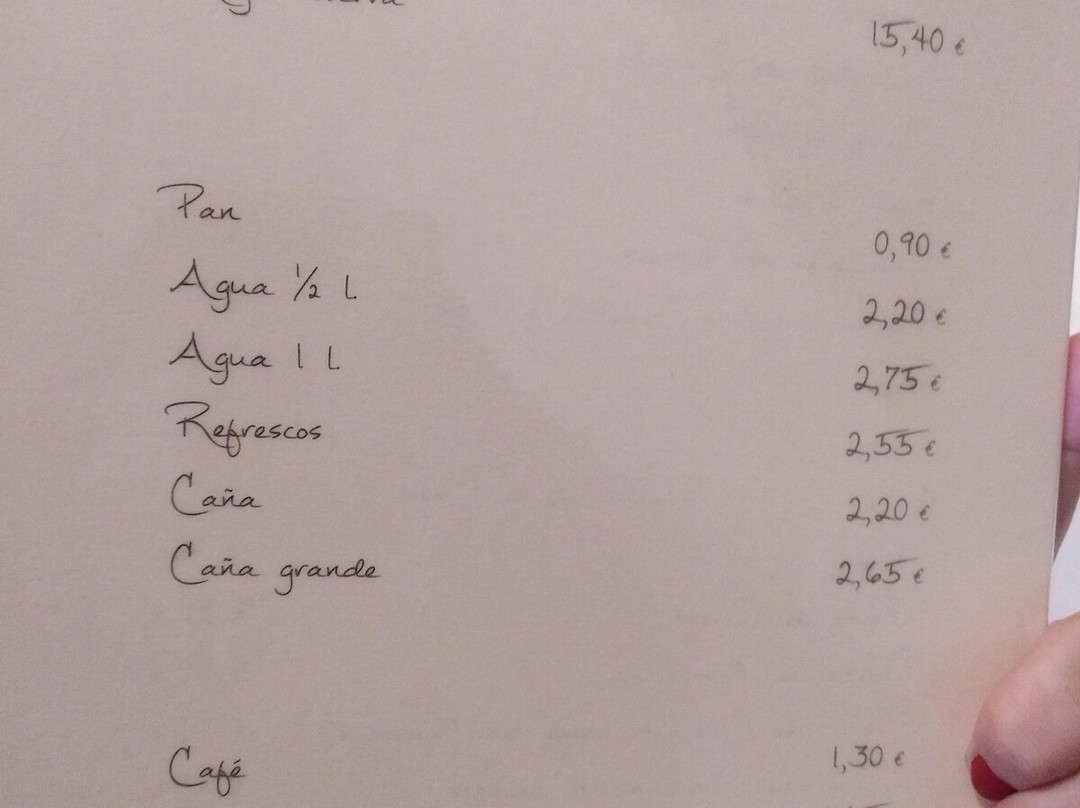 15,40 €
Pan 0,90 €
Agua ½ L 2,20 €
Agua 1 L 2,75 €
Refrescos 2,55 €
Caña 2,20 €
Caña grande 2,65 €
Café 1,30 €